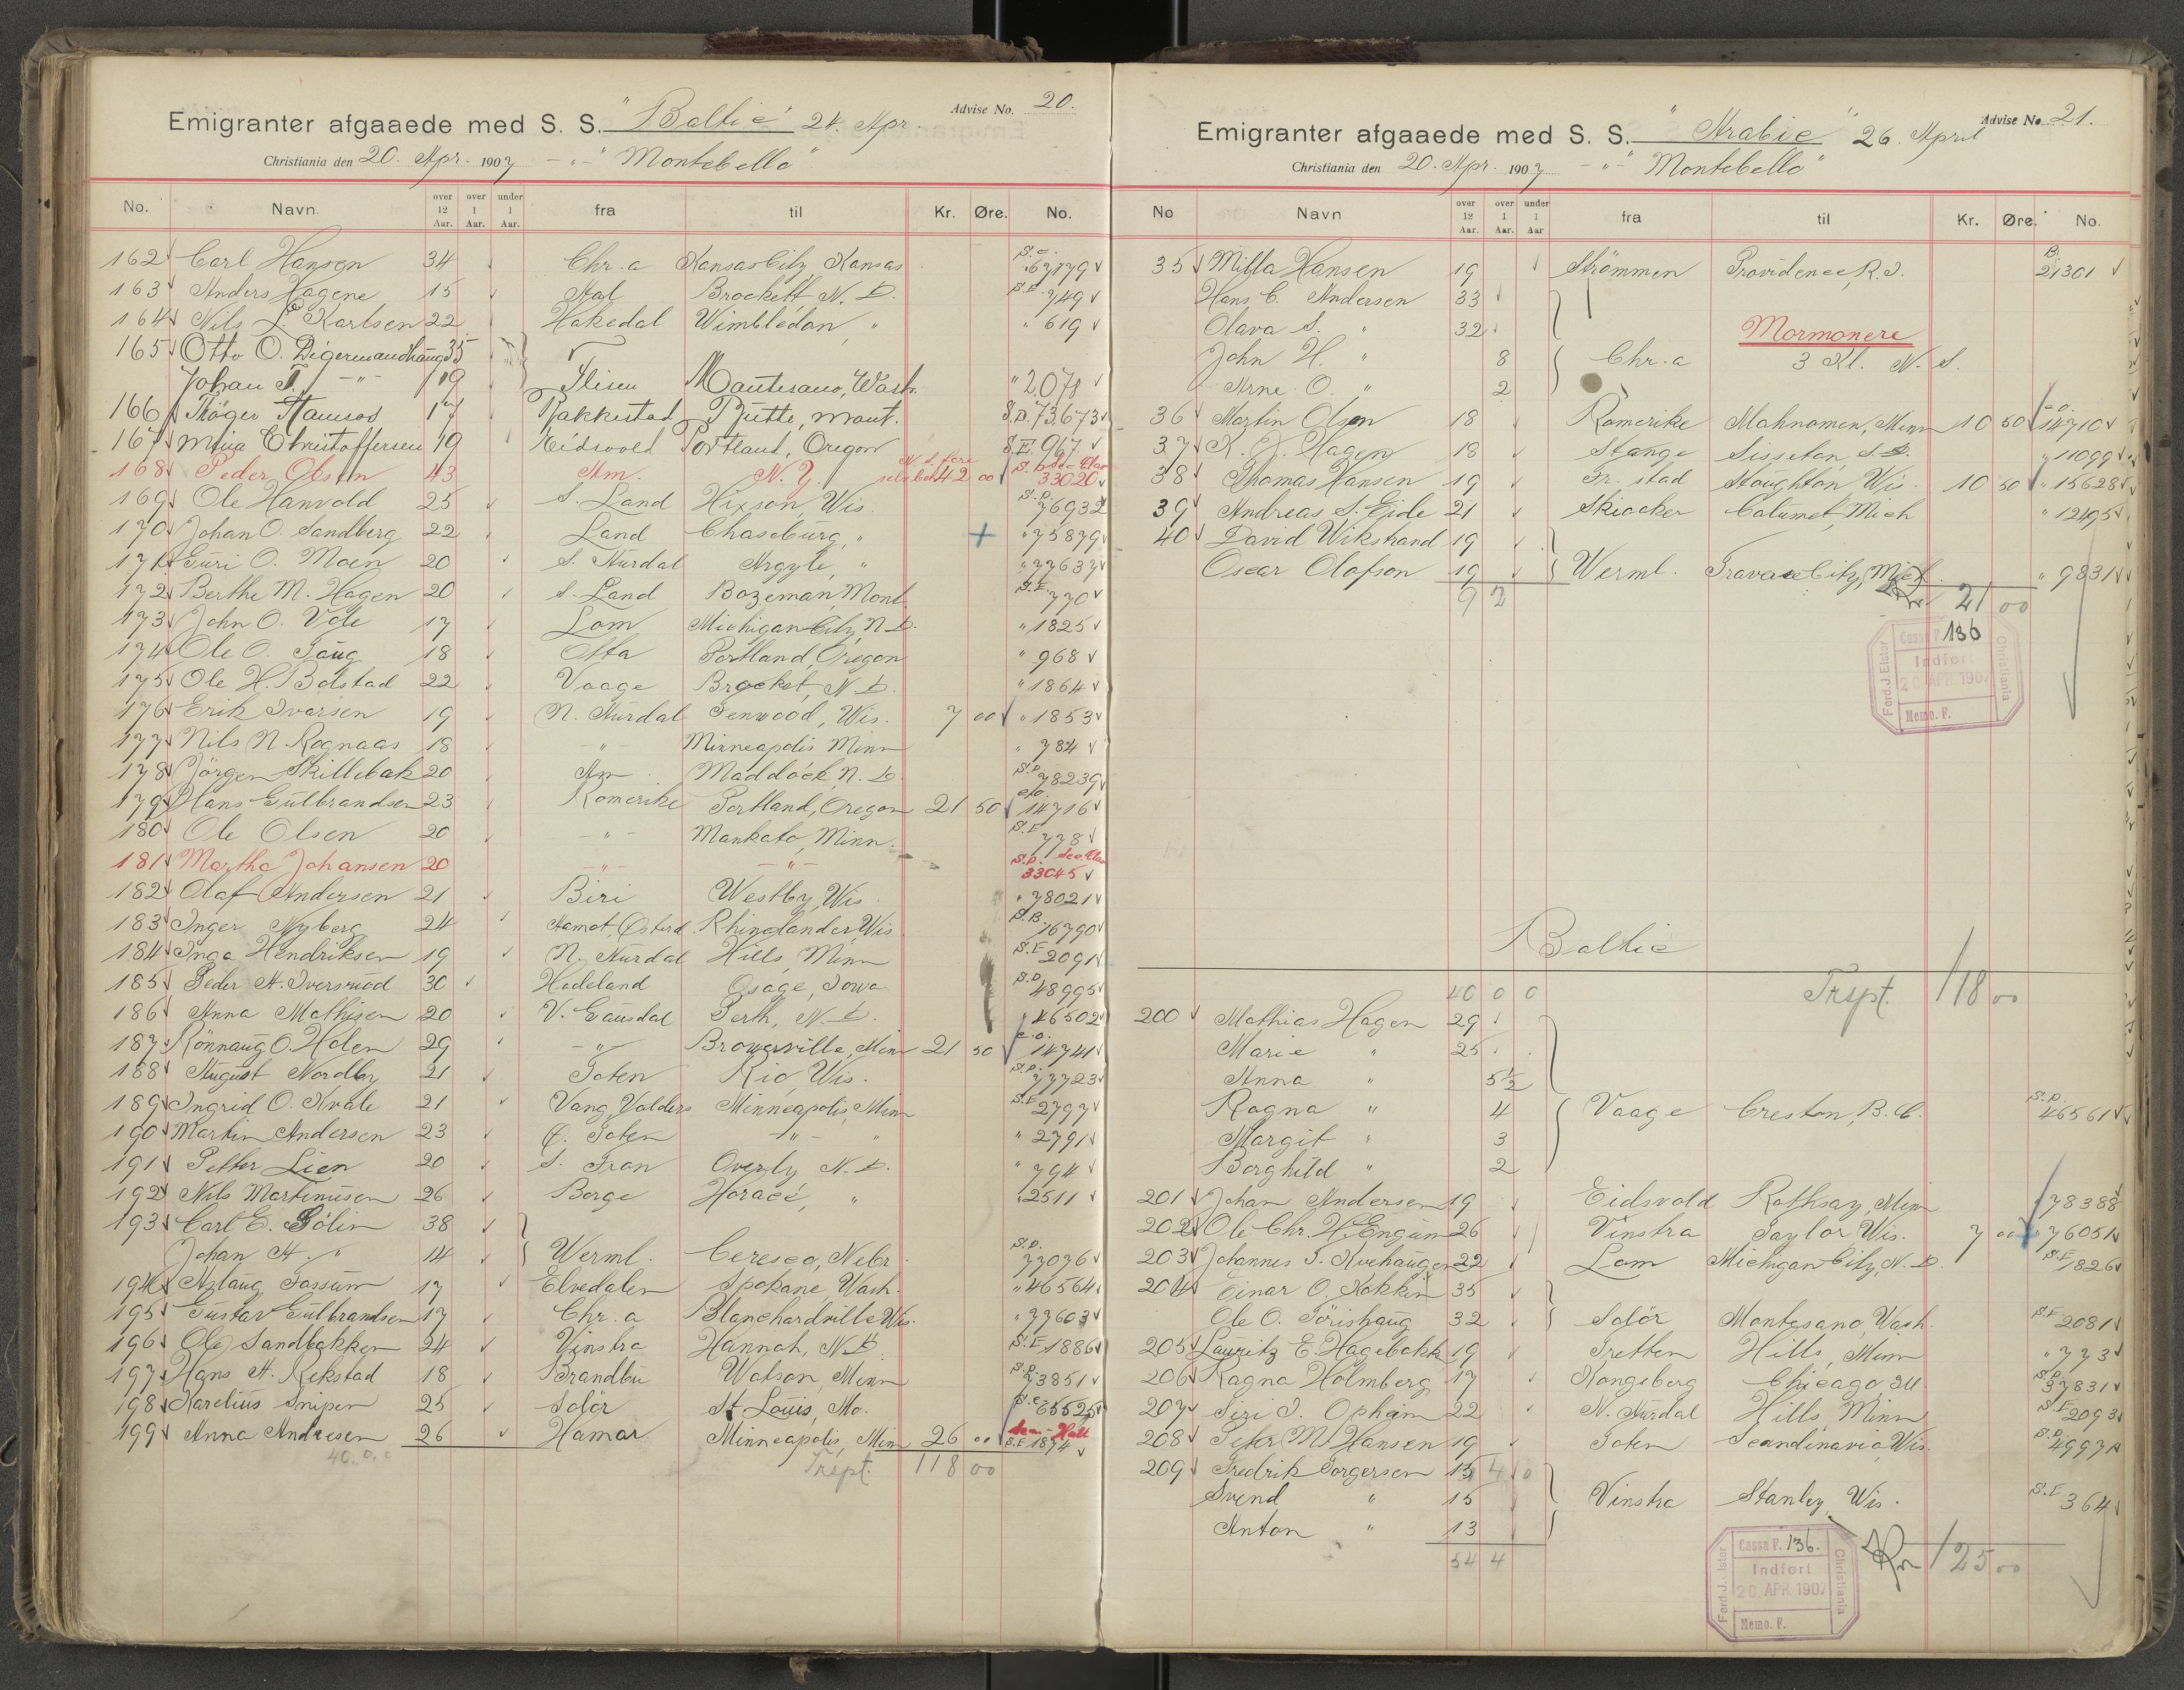 Advise No. 20.
Emigranter afgaaede med S. S. "Baltic" 24. Apr.
Christiania den 20. Apr. 1907 — " — "Montebello"
No. Navn. over 12 Aar. over 1 Aar. under 1 Aar. fra til Kr. Øre. No.
162 Carl Hansen 34 Chr.a Kansas City, Kansas 67879
163 Anders Hagene 15 Aal Brockett N. D. S.E. 749
164 Nils L. Karlsen 22 Hakedal Wimbledon, " " 619
165 Otto O. Digermandhaug 35
Johan T. — " — 19 Flisen Montesano, Wash. " 2071
166 Thöger Hamsos 17 Rakkestad Butte, Mont. S.P. 73673
167 Mina Christoffersen 19 Eidsvold Portland, Oregon S.E. 967
168 Peder Olsen 43 Am. N. Y. 42 00 33020
169 Ole Hanvold 25 S. Land Hixson, Wis. S.P. 76932
170 Johan O. Sandberg 22 Land Chaseburg, " + " 75879
171 Guri O. Moen 20 S. Aurdal Argyle, " " 77637
172 Berthe M. Hagen 20 S. Land Bozeman, Mont. S.E. 770
173 John O. Vole 17 Lom Michigan City, N. D. " 1825
174 Ole O. Haug 18 Otta Portland, Oregon " 968
175 Ole H. Bolstad 22 Vaage Brocket, N. D. " 1864
176 Erik Ivarsen 19 N. Aurdal Fenwood, Wis. 7 00 " 1853
177 Nils N. Rognaas 18 — " — Minneapolis Minn " 784
178 Jörgen Skillebak 20 Am Maddock, N. D. S.P. 78239
179 Hans Gulbrandsen 23 Romerike Portland, Oregon 21 50 14716
180 Ole Olsen 20 — " — Mankato, Minn. S.E. 778
181 Martha Johansen 20 — " — — " — S.P. 33045
182 Olaf Andersen 21 Biri Westby, Wis. " 78021
183 Inger Nyberg 24 Aamot, Østerd. Rhinelander Wis S.B. 16790
184 Inga Hendriksen 19 N. Aurdal Hills, Minn S.E. 2091
185 Peder A. Iversrud 30 Hadeland Osage, Iowa S.P. 48995
186 Anna Mathisen 20 V. Gausdal Perth, N. D. 46502
187 Rönnaug O. Holen 29 — " — Browerville, Minn 21 50 e.o. 14741
188 August Nordby 21 Toten Rio, Wis. S.P. 77723
189 Ingrid O. Kvale 21 Vang, Valders Minneapolis, Minn S.E. 2797
190 Martin Andersen 23 Ø. Toten — " — " " 2791
191 Petter Lien 20 S. Fron Overly N. D. " 794
192 Nils Martinusen 26 Borge Horace, " " 2511
193 Carl E. Bölin 38
Johan A. " 14 Werml. Ceresco, Nebr. S.P. 77076
194 Aslaug Fossum 17 Elvedalen Spokane Wash. " 46564
195 Gustav Gulbrandsen 17 Chr.a Blanchardville Wis. " 77603
196 Ole Sandbakken 24 Vinstra Hannah, N. D. S.E. 1886
197 Hans A. Rekstad 18 Brandbu Watson, Minn S.P. 73851
198 Karelius Snipen 25 Solör St. Louis, Mo. 65525
199 Anna Andresen 26 Hamar Minneapolis, Minn 26 00 S.E. 1874
40. 0. 0 Trspt. 118 00
Advise No. 21.
Emigranter afgaaede med S. S. "Arabic" 26. April
Christiania den 20. Apr. 1907 — " — "Montebello"
No Navn over 12 Aar. over 1 Aar. under 1 Aar fra til Kr. Øre. No.
35 Milla Hansen 19 Strömmen Providence, R. I. B. 21301
Hans C. Andersen 33
Olava S. " 32 Mormonere
John H. " 8 Chr.a 3 Kl. N. S.
Arne O. " 2
36 Martin Olsen 18 Romerike Mahnomen, Minn 10 50 14710
37 K. J. Hagen 18 Stange Sisseton S. D. " 11099
38 Thomas Hansen 19 Fr.stad Stoughton Wis 10 50 " 15628
39 Andreas S. Eide 21 Skiacker Calumet, Mich " 12495
40 David Wikstrand 19
Oscar Olofson 19 Werml. Traverse City, Mich. " 9831
9 2 Kr 21 00
Cassa F. 136
Indført
20. APR. 1907
Memo. F.
Ferd. J. Elster
Christiania
Baltic
40 0 0 Trspt. 118 00
200 Mathias Hagen 29
Marie " 25
Anna " 5½
Ragna " 4 Vaage Creston, B. C. S.P. 46561
Margit " 3
Borghild " 2
201 Johan Andersen 19 Eidsvold Rothsay, Minn 78388
202 Ole Chr. H. Engum 26 Vinstra Taylor Wis. 7 00 76051
203 Johannes J. Kvehaugen 22 Lom Michigan City, N. D. S.E. 1826
204 Einar O. Kokkin 35
Ole O. Törishaug 32 Solör Montesano, Wash. S.E. 2081
205 Lauritz E. Hagebakk 19 Tretten Hills, Minn " 773
206 Ragna Holmberg 17 Kongsberg Chicago, Ill S.P. 37831
207 Siri I. Opheim 22 N. Aurdal Hills, Minn S.E. 2093
208 Peter M. Hansen 19 Toten Scandinavia, Wis. S.P. 49971
209 Fredrik Torgersen 15
Svend " 15 Vinstra Stanley, Wis. S.E. 364
Anton " 13
54 4 Kr 125 00
Cassa F. 136.
Indført
20. APR. 1907
Memo. F.
Ferd. J. Elster
Christiania